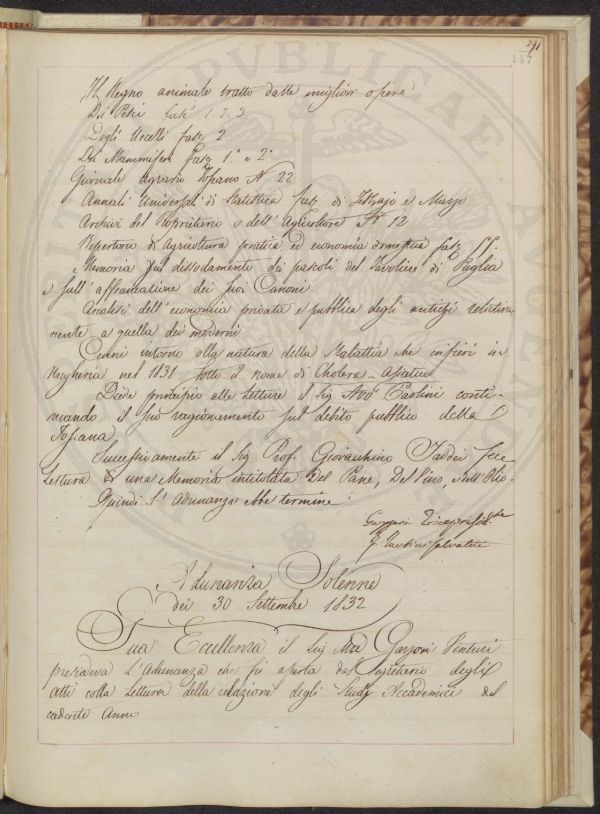 291
147
Il Regno animale tratto dalle migliori opere
Dei Pesci fasc. 1. 2. 3
Degli Uccelli fasc. 2
Dei Mammiferi Fasc. 1.° e 2°
Giornale Agrario Toscano N° 22
Annali Universali di Statistica fasc. di Febbrajo e Marzo
Archivi del Proprietario e dell'Agricoltore N° 12
Repertorio di Agricoltura pratica ed economia domestica fasc.
Memoria sul dissodamento dei pascoli del Tavoliere di Puglia
e sull'affrancazione dei suoi Canoni
Analisi dell'economia privata e pubblica degli antichi relativa
mente a quella dei moderni
Cenni intorno alla natura della Malattia che infierì in
Ungheria nel 1831 sotto il nome di Cholera-Asiatico
Diede principio alle letture il Sig Avvo Paolini conti-
nuando il suo ragionamento sul debito pubblico della
Toscana
Successivamente il Sig Prof. Giovacchino Taddei fece
Lettura di una Memoria intitolata Del Pane, Del Vino, e dell'Olio.
Quindi l'Adunanza ebbe termine
Garzoni
Salvatore
Adunanza Solenne
dei 30 Settembre 1832
Sua Eccellenza il Sig Garzoni Venturi
presiedeva L'Adunanza che fu aperta dal Segretario degli
Atti colla Lettura della relazione degli Studj Accademici del
cadente Anno
REPUBLICAE